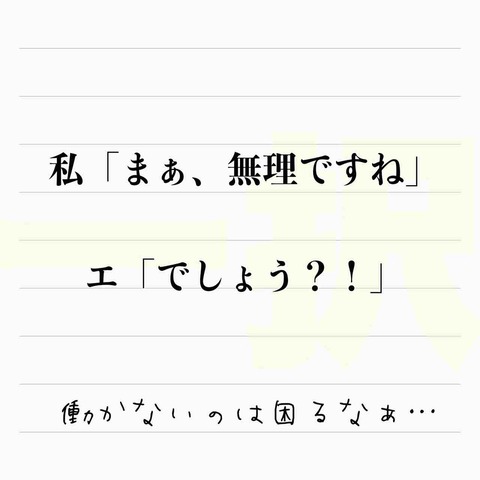 私「まぁ、無理ですね」
エ「でしょう？！」
働かないのは困るなぁ…